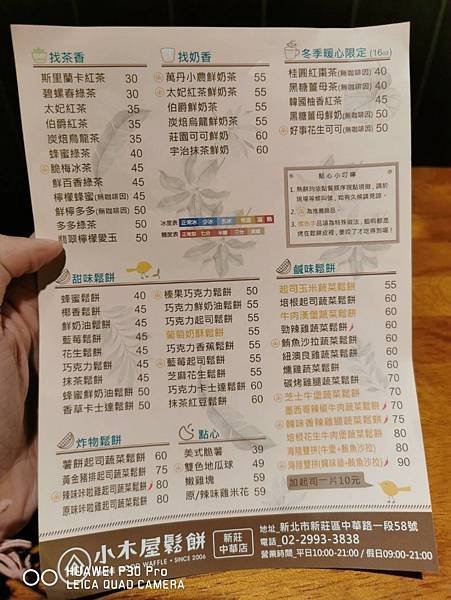 找茶香
斯里蘭卡紅茶 30
碧螺春綠茶 30
太妃紅茶 35
伯爵紅茶 35
炭焙烏龍茶 35
蜂蜜綠茶 40
脆梅冰茶 45
鮮百香綠茶 45
檸檬蜂蜜(無咖啡因) 45
鮮檸多多(無咖啡因) 50
多多綠茶 50
翡翠檸檬愛玉 50
找奶香
萬丹小農鮮奶茶 55
太妃紅茶鮮奶茶 55
伯爵鮮奶茶 55
炭焙烏龍鮮奶茶 55
莊園可可鮮奶 60
宇治抹茶鮮奶 60
冰度表 正常冰 少冰 去冰 溫 熱
糖度表 正常甜 七分 半糖 三分 無糖
冬季暖心限定 (16oz)
桂圓紅棗茶(無咖啡因) 40
黑糖薑母茶(無咖啡因) 40
韓國柚香紅茶 45
黑糖薑母鮮奶(無咖啡因) 50
好事花生可可(無咖啡因) 50
點心小叮嚀
甜味鬆餅
蜂蜜鬆餅 40
椰香鬆餅 45
鮮奶油鬆餅 45
藍莓鬆餅 45
花生鬆餅 45
巧克力鬆餅 45
抹茶鬆餅 45
蜂蜜鮮奶油鬆餅 50
香草卡士達鬆餅 50
榛果巧克力鬆餅 50
巧克力鮮奶油鬆餅 55
巧克力起司鬆餅 55
葡萄奶酥鬆餅 55
巧克力香蕉鬆餅 55
藍莓起司鬆餅 55
芝麻花生鬆餅 55
巧克力卡士達鬆餅 60
抹茶紅豆鬆餅 60
鹹味鬆餅
起司玉米蔬菜鬆餅 55
培根起司蔬菜鬆餅 60
牛肉漢堡蔬菜鬆餅 60
勁辣雞蔬菜鬆餅 60
鮪魚沙拉蔬菜鬆餅 60
紐澳良雞蔬菜鬆餅 60
燻雞蔬菜鬆餅 60
碳烤雞腿蔬菜鬆餅 60
芝士牛堡蔬菜鬆餅 70
墨西哥辣椒牛肉蔬菜鬆餅 70
韓味香辣雞腿蔬菜鬆餅 75
培根花生牛肉堡蔬菜鬆餅 80
海陸雙拼(牛堡+鮪魚沙拉) 80
海陸雙拼(韓味雞+鮪魚沙拉) 90
加起司一片10元
炸物鬆餅
薯餅起司蔬菜鬆餅 60
黃金豬排起司蔬菜鬆餅 75
辣味咔啦雞起司蔬菜鬆餅 80
原味咔啦雞起司蔬菜鬆餅 80
點心
美式脆薯 39
雙色地瓜球 49
嫩雞塊 59
原/辣味雞米花 59
小木屋鬆餅
WAFFLE · SINCE 2006
新莊中華店
地址_新北市新莊區中華路一段58號
電話_02-2993-3838
營業時間_平日10:00-21:00 / 假日09:00-21:00
HUAWEI P30 Pro
LEICA QUAD CAMERA